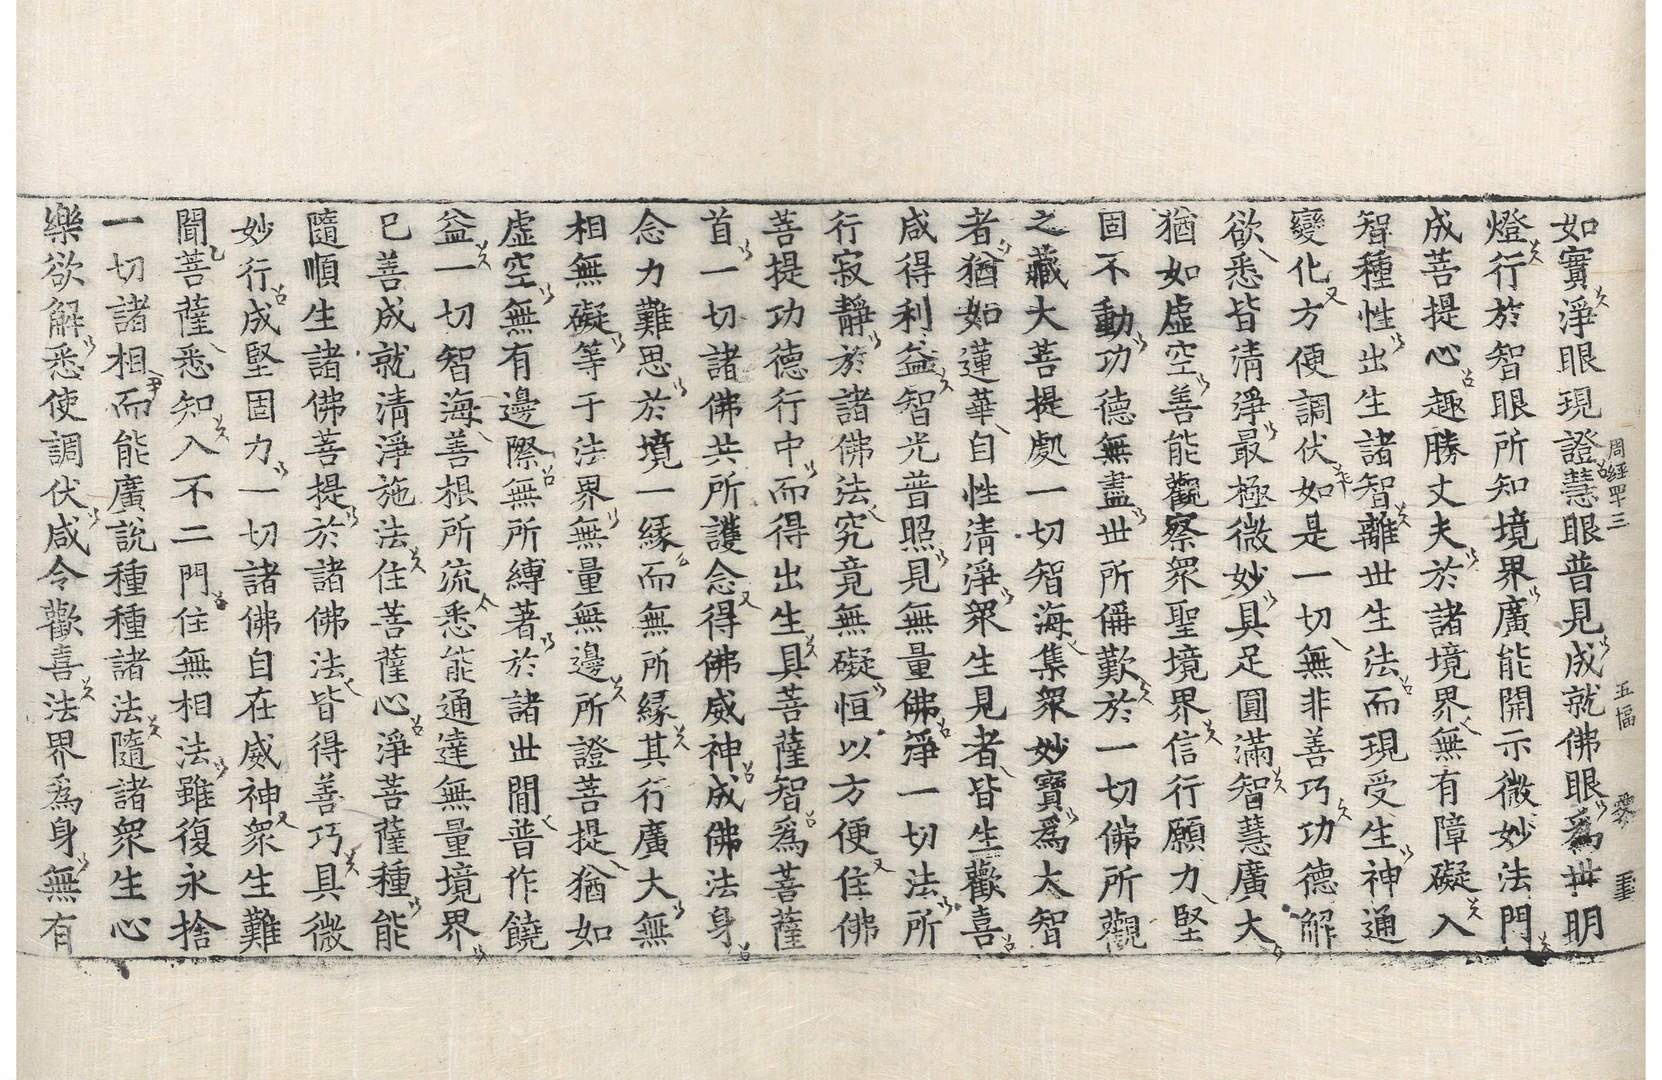 如實淨眼現證慧眼普見成就佛眼爲世明
五幅
燈行於智眼所知境界廣能開示微妙法門
成菩提心趣勝丈夫於諸境界無有障礙入
智種性出生諸智離世生法而現受生神通
變化方便調伏如是一切無非善巧功德解
欲悉皆清淨最極微妙具足圓滿智慧廣大
猶如虛空善能觀察衆聖境界信行願力堅
固不動功德無盡世所稱歎於一切佛所觀
之藏大菩提處一切智海集衆妙寶爲大智
者猶如蓮華自性清淨衆生見者皆生歡喜
咸得利益智光普照見無量佛淨一切法所
行寂靜於諸佛法究竟無礙恒以方便住佛
菩提功德行中而得出生具菩薩智爲菩薩
首一切諸佛共所護念得佛威神成佛法身
念力難思於境一緣而無所緣其行廣大無
相無礙等于法界無量無邊所證菩提猶如
虛空無有邊際無所縛著於諸世閒普作饒
益一切智海善根所流悉能通達無量境界
已善成就清淨施法住菩薩心淨菩薩種能
隨順生諸佛菩提於諸佛法皆得善巧具微
妙行成堅固力一切諸佛自在威神衆生難
聞菩薩悉知入不二門住無相法雖復永捨
一切諸相而能廣說種種諸法隨諸衆生心
樂欲解悉使調伏咸令歡喜法界爲身無有